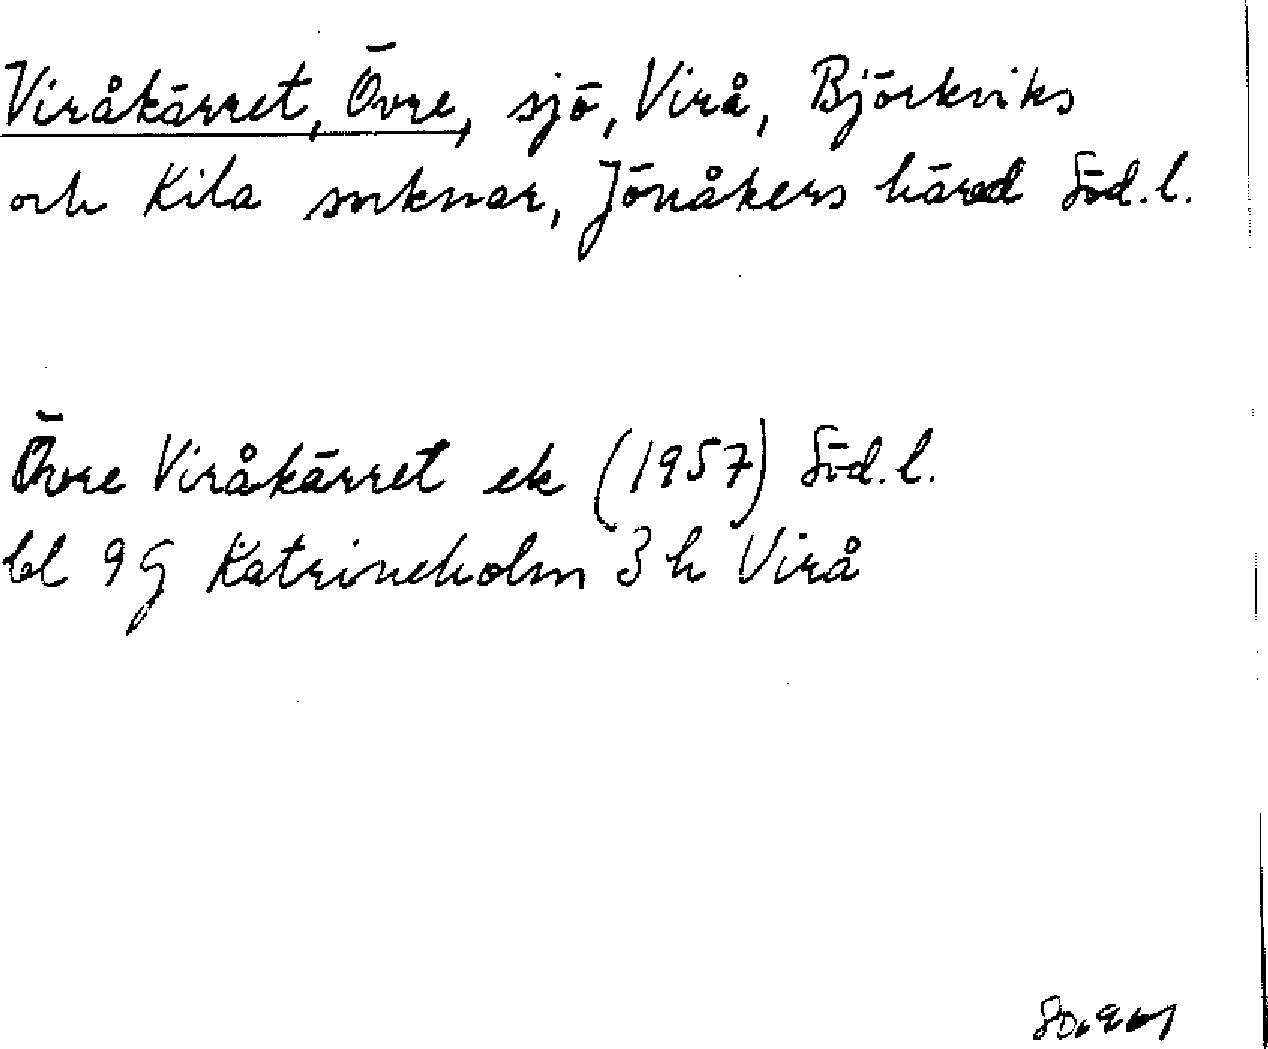 Viråkärret, Övre, sjö, Virå, Björkviks
och Kila socknar, Jönåkers härad Söd.l.
Övre Viråkärret ek (1957) Söd.l.
bl 9G Katrineholm 3h Virå